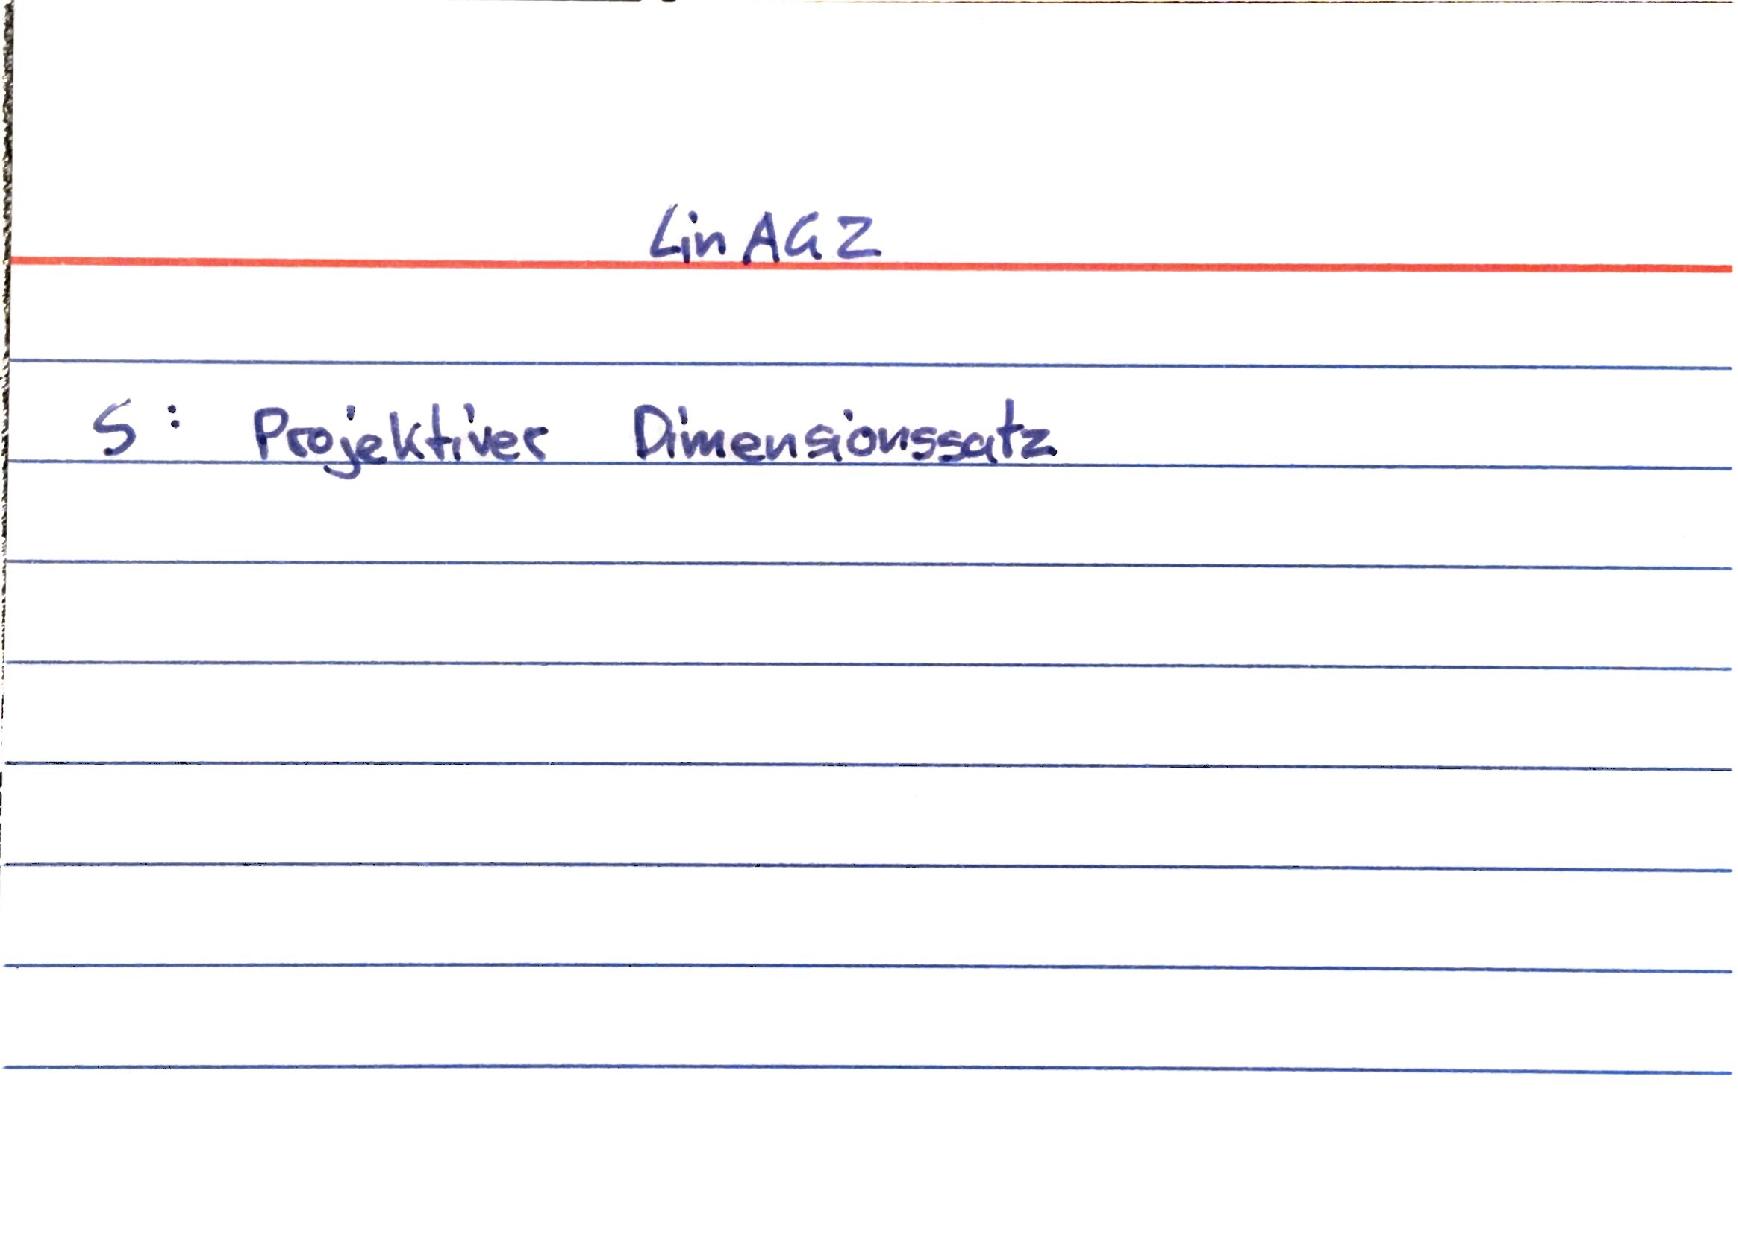 LinAG2
S: Projektiver Dimensionssatz